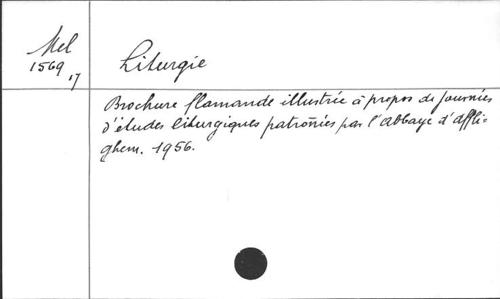 Mel
1569
17
Liturgie
Brochure flamande illustrée à propos de journées
d'études liturgiques patronnées par l'Abbaye d'Affli-
ghem. 1956.